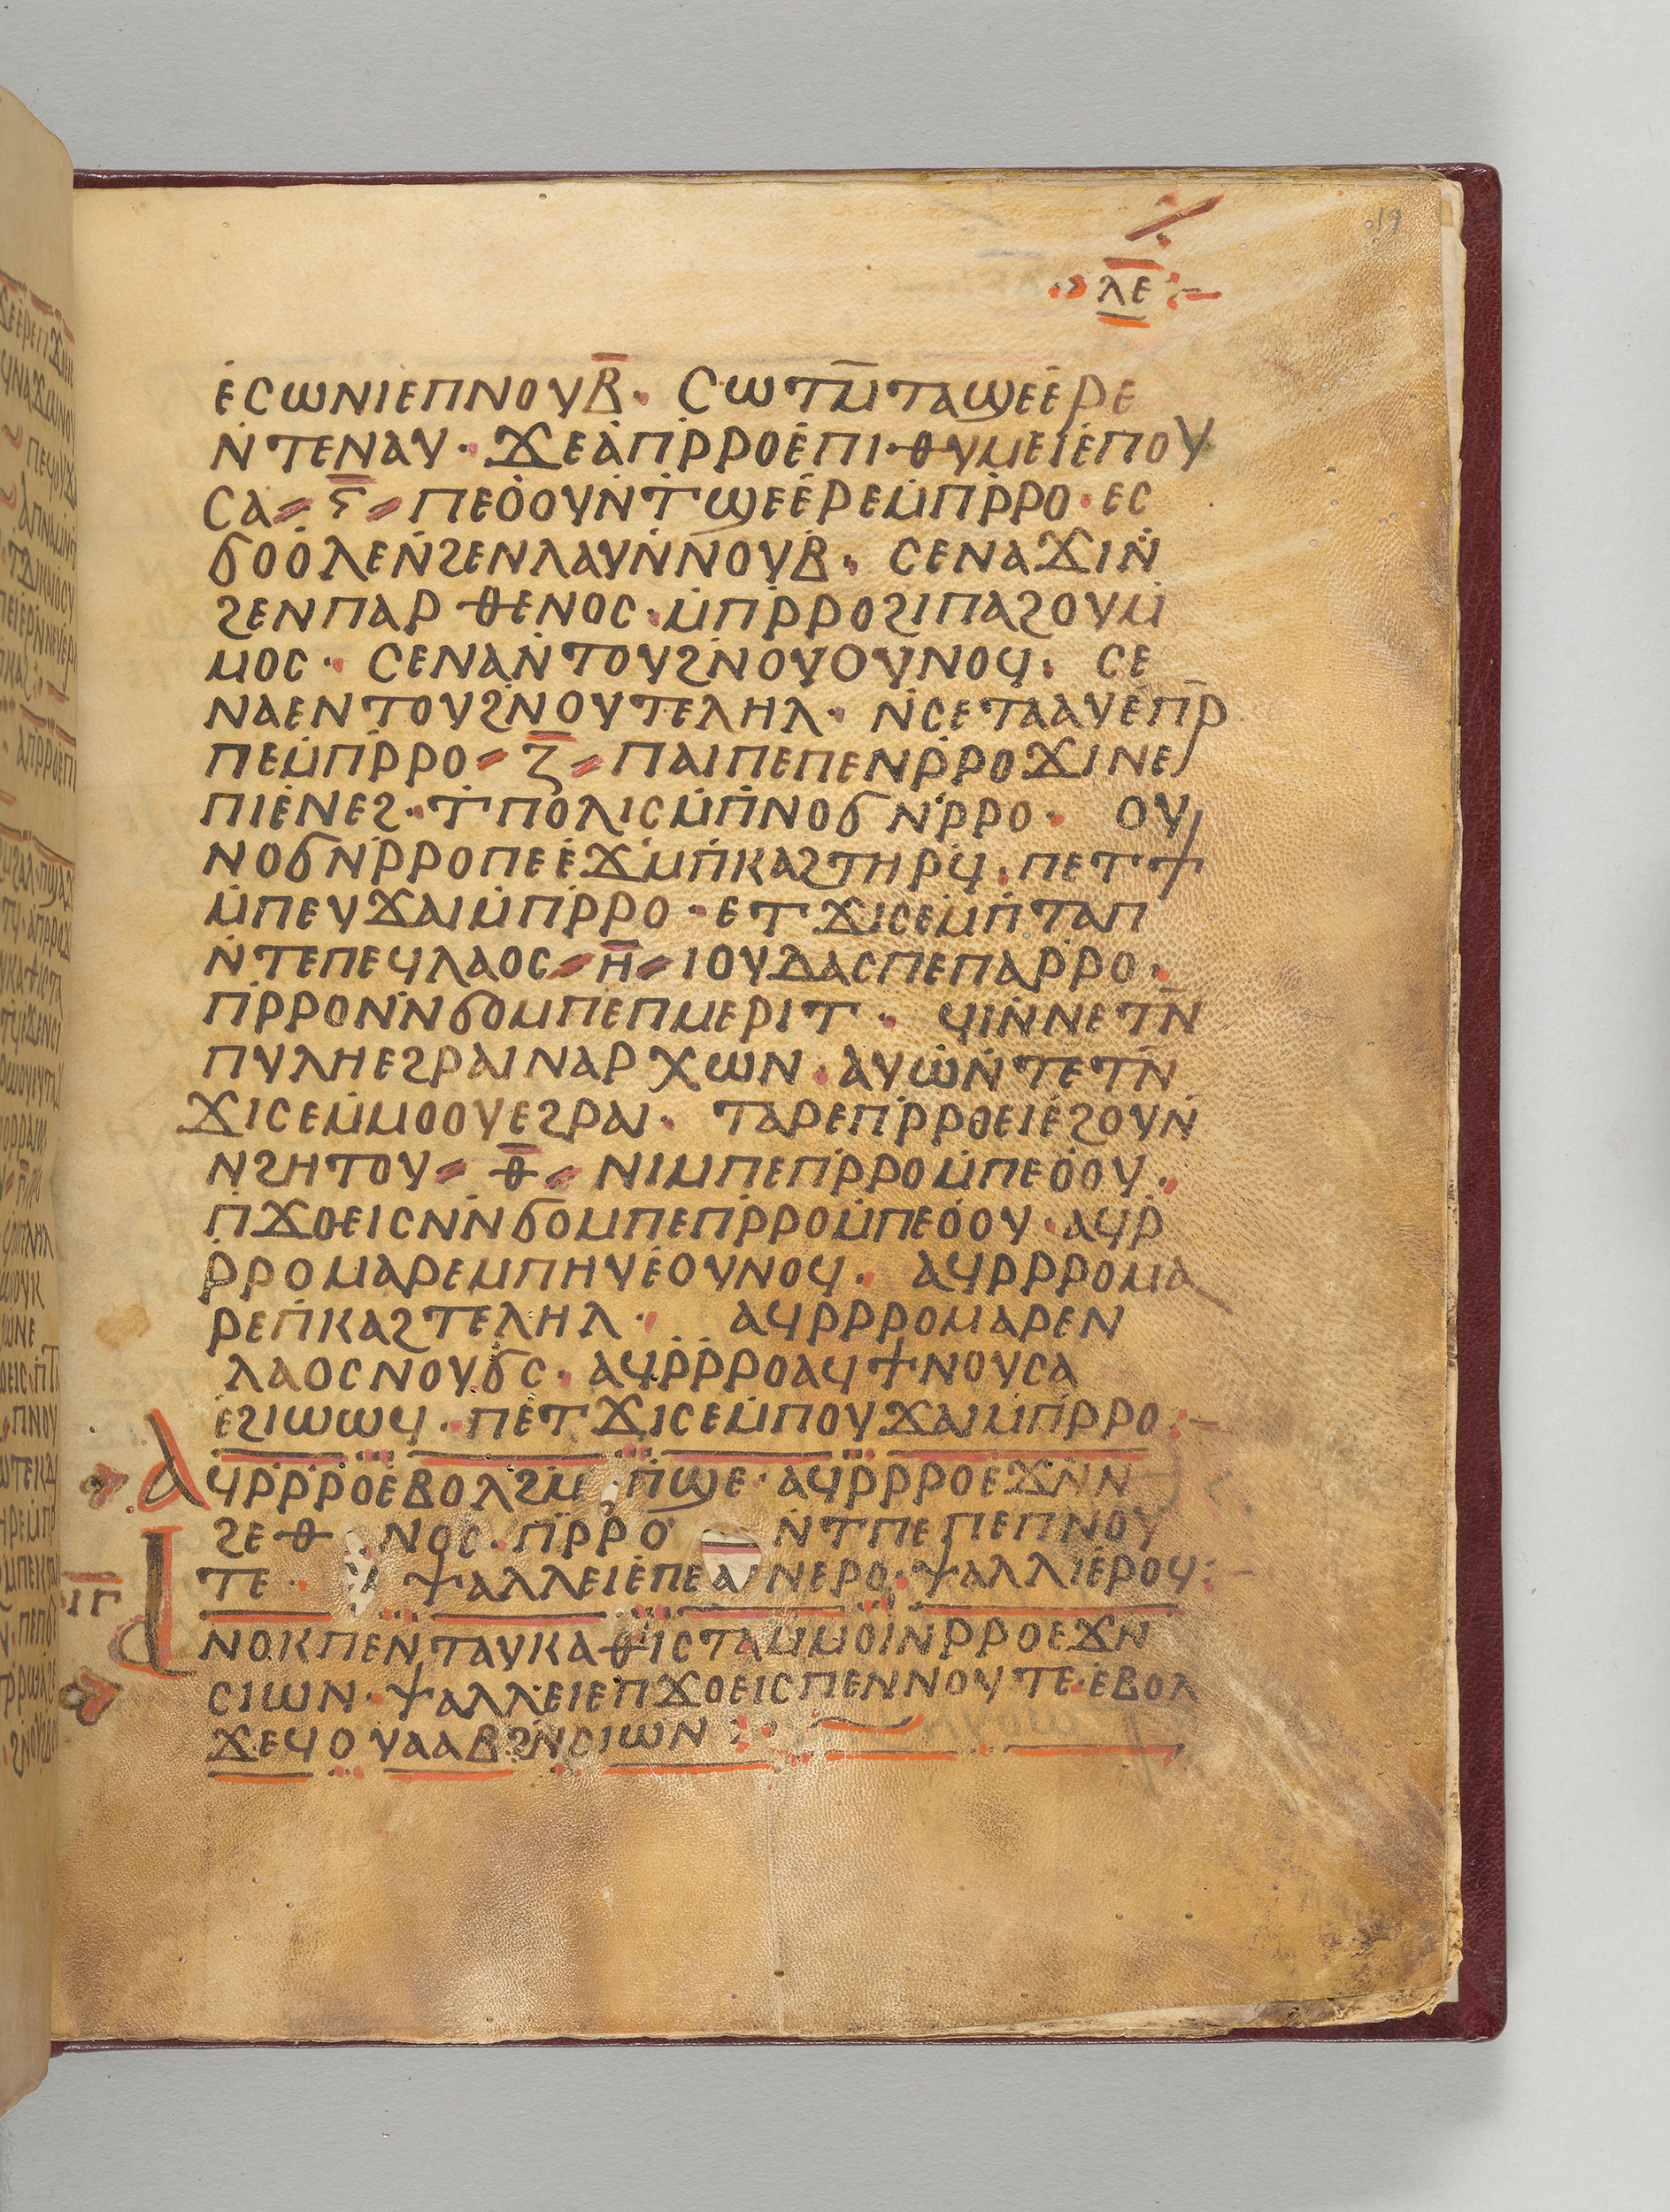 19
ⲗⲉ
ⲉⲥⲱⲛⲓⲉⲡⲛⲟⲩⲃ̅· ⲥⲱⲧⲙ̅ⲧⲁϣⲉⲉⲣⲉ
ⲛ̇ⲧⲉⲛⲁⲩ· ϫⲉⲁⲡⲣ̇ⲣⲟⲉ̇ⲡⲓⲑⲩⲙⲉⲓⲉ̇ⲡⲟⲩ
ⲥⲁ ⸗ ⲋ̅ ⸗ ⲡⲉⲟ̇ⲟⲩⲛ̇ⲧ̇ϣⲉⲉ̇ⲣⲉⲙ̇ⲡⲣ̇ⲣⲟ· ⲉⲥ
ϭⲟⲟ̇ⲗⲉⲛ̇ϩⲉⲛⲗⲁⲩⲛ̇ⲛ̇ⲟⲩⲃ· ⲥⲉⲛⲁϫⲓⲛ̇
ϩⲉⲛⲡⲁⲣⲑⲉⲛⲟⲥ·ⲙ̇ⲡⲣ̇ⲣⲟϩⲓⲡⲁϩⲟⲩⲙ̇
ⲙⲟⲥ· ⲥⲉⲛⲁⲛ̇ⲧⲟⲩϩⲛ̇ⲟⲩⲟⲩⲛⲟϥ· ⲥⲉ
ⲛⲁⲉⲛⲧⲟⲩϩⲛ̇ⲟⲩⲧⲉⲗⲏⲗ· ⲛ̇ⲥⲉⲧⲁⲁⲩⲉ̇ⲡⲣ̅
ⲡⲉⲙ̇ⲡⲣ̇ⲣⲟ ⸗ ⲍ̅ ⸗ ⲡⲁⲓⲡⲉⲡⲉⲛⲣ̇ⲣⲟϫⲓⲛⲉ
ⲡⲓⲉ̇ⲛⲉϩ·ⲧ̇ⲡⲟⲗⲓⲥⲙ̇ⲡ̇ⲛⲟϭⲛ̇ⲣ̇ⲣⲟ· ⲟⲩ
ⲛⲟϭⲛ̇ⲣ̇ⲣⲟⲡⲉⲉ̇ϫⲙ̇ⲡ̇ⲕⲁϩⲧⲏⲣϥ̇·ⲡⲉⲧϯ
ⲙ̇ⲡⲉⲩϫⲁⲓⲙ̇ⲡⲣ̇ⲣⲟ·ⲉⲧϫⲓⲥⲉⲙ̇ⲡ̇ⲧⲁⲡ
ⲛ̇ⲧⲉⲡⲉϥⲗⲁⲟⲥ ⸗ ⲏ̅ ⸗ ⲓⲟⲩⲇⲁⲥⲡⲉⲡⲁⲣ̇ⲣⲟ·
ⲡⲣ̇ⲣⲟⲛ̇ⲛ̇ϭⲟⲙⲡⲉⲡⲙⲉⲣⲓⲧ· ϥⲓⲛ̇ⲛⲉⲧⲛ̅
ⲡⲩⲗⲏⲉϩⲣⲁⲓⲛⲁⲣⲭⲱⲛ·ⲁⲩⲱⲛ̇ⲧⲉⲧⲛ̅
ϫⲓⲥⲉⲙ̇ⲙⲟⲟⲩⲉϩⲣⲁⲓ· ⲧⲁⲣⲉⲡⲣ̇ⲣⲟⲉⲓⲉ̇ϩⲟⲩⲛ
ⲛ̇ϩⲏⲧⲟⲩ ⸗ ⲑ̅ ⸗ ⲛⲓⲙⲡⲉⲡⲣ̇ⲣⲟⲙ̇ⲡⲉⲟ̇ⲟⲩ·
ⲡ̇ϫⲟⲉⲓⲥⲛ̇ⲛ̇ϭⲟⲙⲡⲉⲡⲣ̇ⲣⲟⲙ̇ⲡⲉⲟ̇ⲟⲩ·ⲁϥⲣ̇
ⲣ̇ⲣⲟⲙⲁⲣⲉⲙⲡⲏⲩⲉ̇ⲟⲩⲛⲟϥ· ⲁϥⲣⲣⲣⲟⲙⲁ
ⲣⲉⲡ̇ⲕⲁϩⲧⲉⲗⲏⲗ· ⲁϥⲣⲣⲣⲟⲙⲁⲣⲉⲛ
ⲗⲁⲟⲥⲛⲟⲩϭⲥ·ⲁϥⲣ̇ⲣ̇ⲣⲟⲁϥϯⲛⲟⲩⲥⲁ
ⲉ̇ϩⲓⲱⲱϥ·ⲡⲉⲧϫⲓⲥⲉⲙ̇ⲡⲟⲩϫⲁⲓⲙ̇ⲡⲣ̇ⲣⲟ:–
ⲁϥⲣ̇ⲣ̇ⲣⲟⲉⲃⲟⲗϩⲙ ⲡ̇ϣⲉ·ⲁϥⲣⲣⲣⲟⲉϫⲛ̇ⲛ
ϩⲉⲑ ⲛⲟⲥ·ⲡⲣ̇ⲣⲟ ⲛ̇ⲧⲡⲉⲡⲉⲡⲛⲟⲩ
ⲧⲉ· ⲯⲁⲗⲗⲉⲓⲉ̇ⲡⲉ ⲛⲉⲣⲟ·ⲯⲁⲗⲗⲓⲉ̇ⲣⲟϥ:–
ⲓⲅ̅
ⲁⲛⲟⲕⲡⲉⲛⲧⲁⲩⲕⲁⲑⲓⲥⲧⲁⲙ̇ⲙⲟⲓⲛ̇ⲣ̇ⲣⲟⲉϫⲛ̇
ⲥⲓⲱⲛ·ⲯⲁⲗⲗⲉⲓⲉⲡ̇ϫⲟⲉⲓⲥⲡⲉⲛⲛⲟⲩⲧⲉ·ⲉ̇ⲃⲟⲗ
ϫⲉϥⲟⲩⲁⲁⲃϩⲛ̇ⲥⲓⲱⲛ: